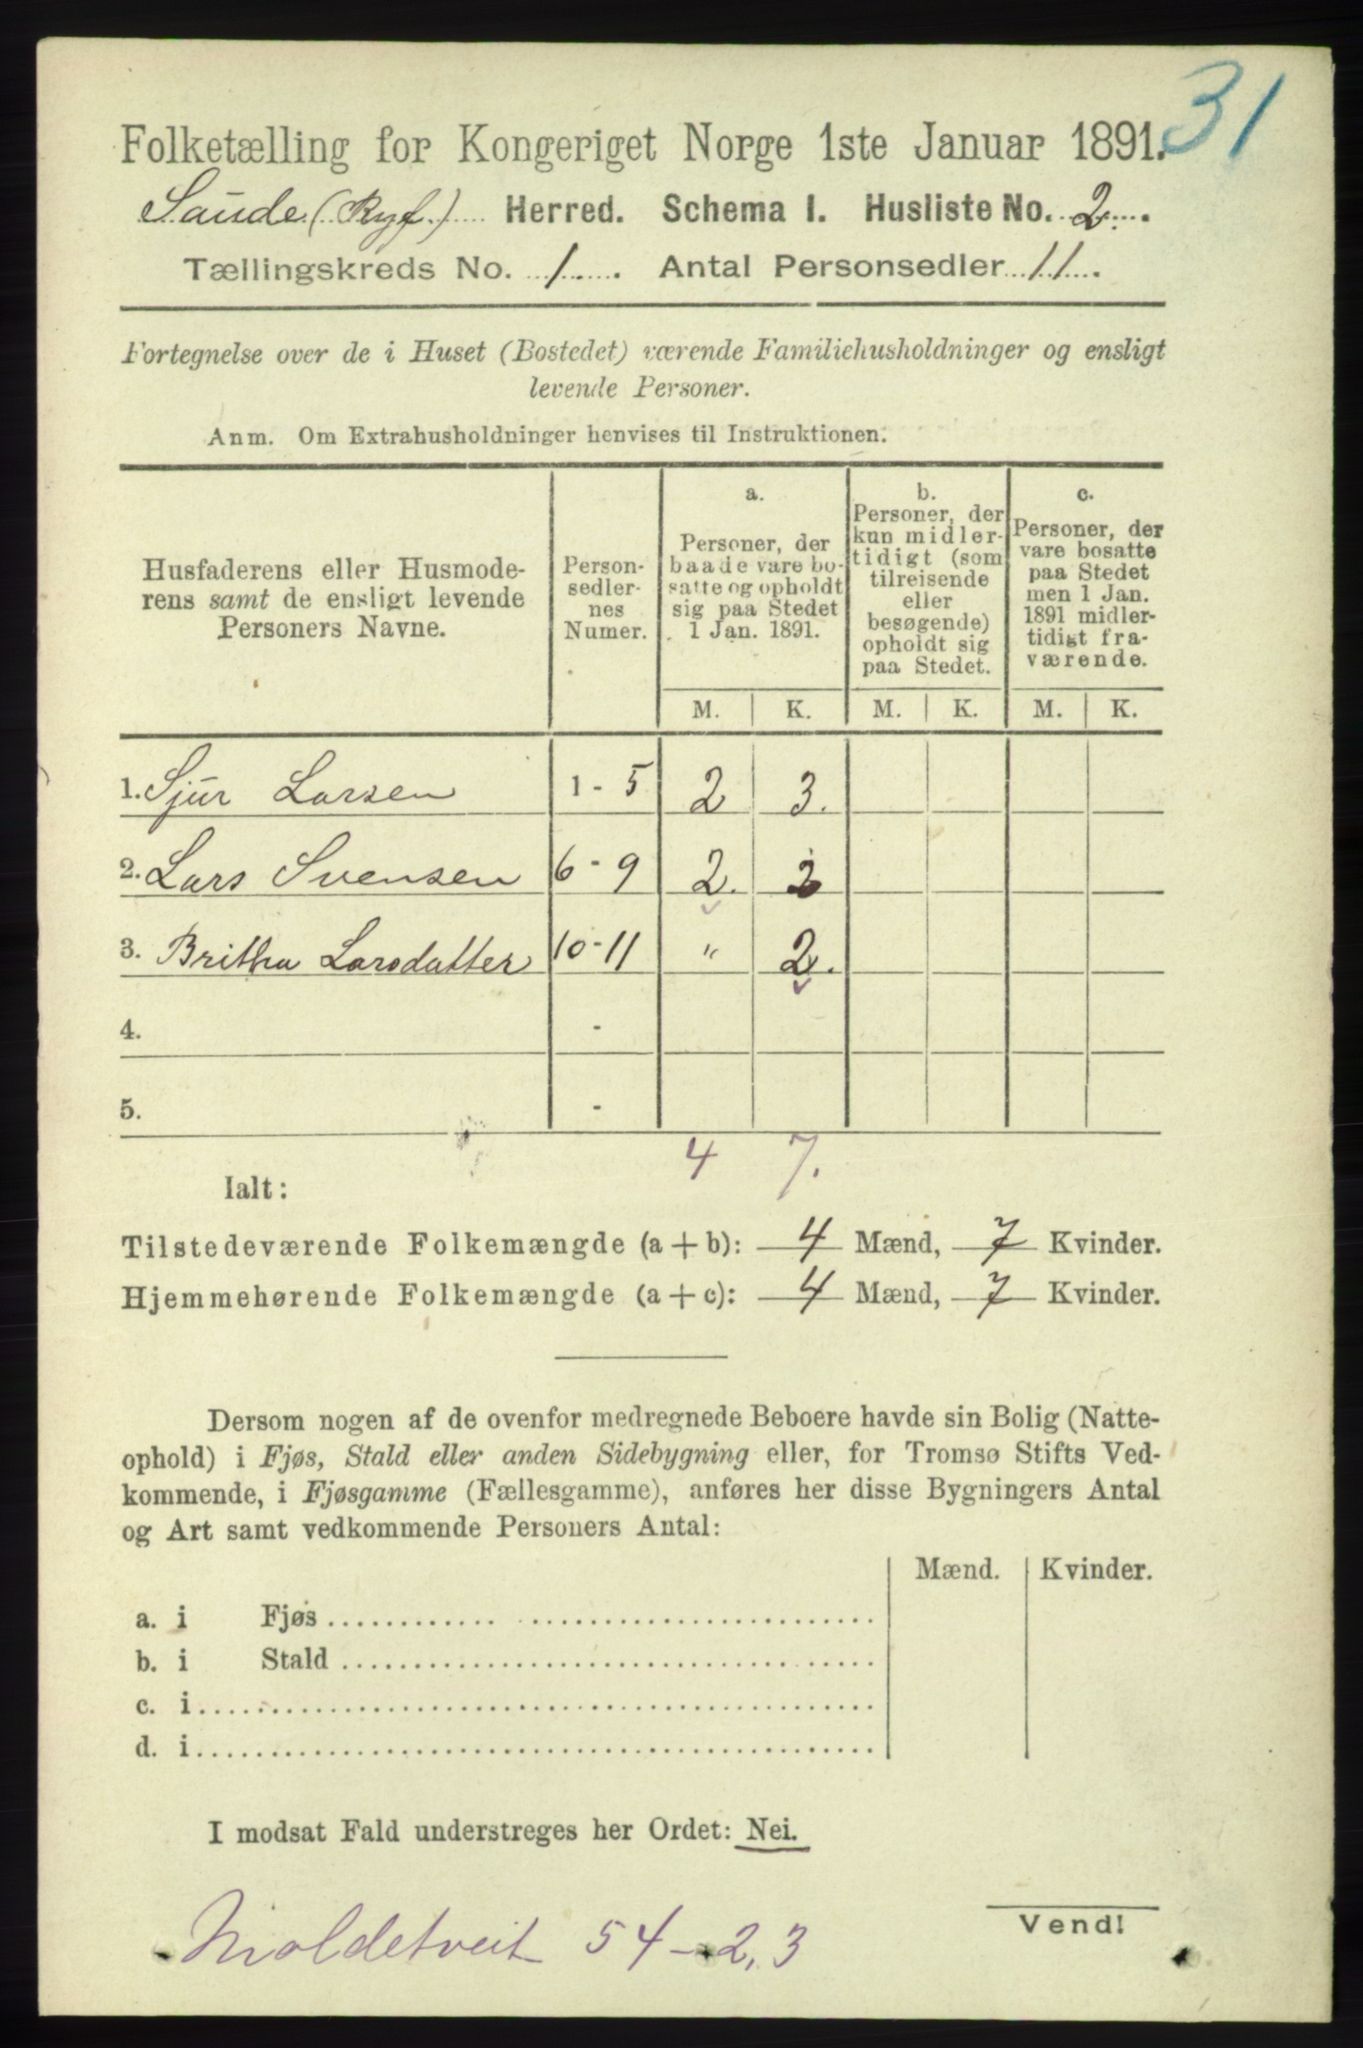 31
Folketælling for Kongeriget Norge 1ste Januar 1891.
Saude (Ryf.) Herred. Schema I. Husliste No. 2.
Tællingskreds No. 1. Antal Personsedler 11.
Fortegnelse over de i Huset (Bostedet) værende Familiehusholdninger og ensligt
levende Personer.
Anm. Om Extrahusholdninger henvises til Instruktionen.
Husfaderens eller Husmode-
rens samt de ensligt levende
Personers Navne.
Person-
sedler-
nes
Numer.
a.
Personer, der
baade vare bo-
satte og opholdt
sig paa Stedet
1 Jan. 1891.
b.
Personer, der
kun midler-
tidigt (som
tilreisende
eller
besøgende)
opholdt sig
paa Stedet.
c.
Personer, der
vare bosatte
paa Stedet
men 1 Jan.
1891 midler-
tidigt fra-
værende.
M. K. M. K. M. K.
1. Sjur Larsen 1 - 5 2 3.
2. Lars Svensen 6 - 9 2. 2
3. Britha Larsdatter 10 - 11 " 2.
4. -
5. -
4 7.
Ialt:
Tilstedeværende Folkemængde (a + b): 4 Mænd, 7 Kvinder.
Hjemmehørende Folkemængde (a + c): 4 Mænd, 7 Kvinder.
Dersom nogen af de ovenfor medregnede Beboere havde sin Bolig (Natte-
ophold) i Fjøs, Stald eller anden Sidebygning eller, for Tromsø Stifts Ved-
kommende, i Fjøsgamme (Fællesgamme), anføres her disse Bygningers Antal
og Art samt vedkommende Personers Antal:
Mænd. Kvinder.
a. i Fjøs
b. i Stald
c. i
d. i
I modsat Fald understreges her Ordet: Nei.
Vend!
Moldetveit 54 - 2,3